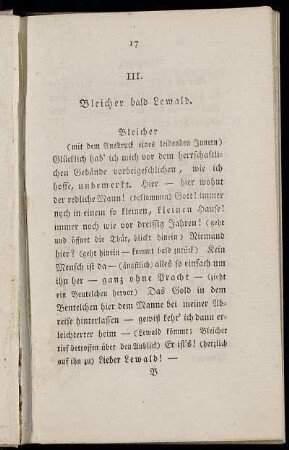 17
III.
Bleicher bald Lewald.
Bleicher
(mit dem Ausdruck eines leidenden Innern)
Glücklich hab' ich mich vor dem herrschaftli-
chen Gebäude vorbeigeschlichen, wie ich
hoffe, unbemerkt. Hier — hier wohnt
der redliche Mann! (beklommen) Gott! immer
noch in einem so kleinen, kleinen Hause!
immer noch wie vor dreissig Jahren! (geht
und öffnet die Thür, blickt hinein) Niemand
hier? (geht hinein — kommt bald zurück) Kein
Mensch ist da — (ängstlich) alles so einfach um
ihn her — ganz ohne Pracht — (zieht
ein Beutelchen hervor) Das Gold in dem
Beutelchen hier dem Manne bei meiner Ab-
reise hinterlassen — gewiß kehr' ich dann er-
leichterter heim — (Lewald kömmt; Bleicher
tief betroffen über den Anblick) Er ist's! (herzlich
auf ihn zu) Lieber Lewald! —
B